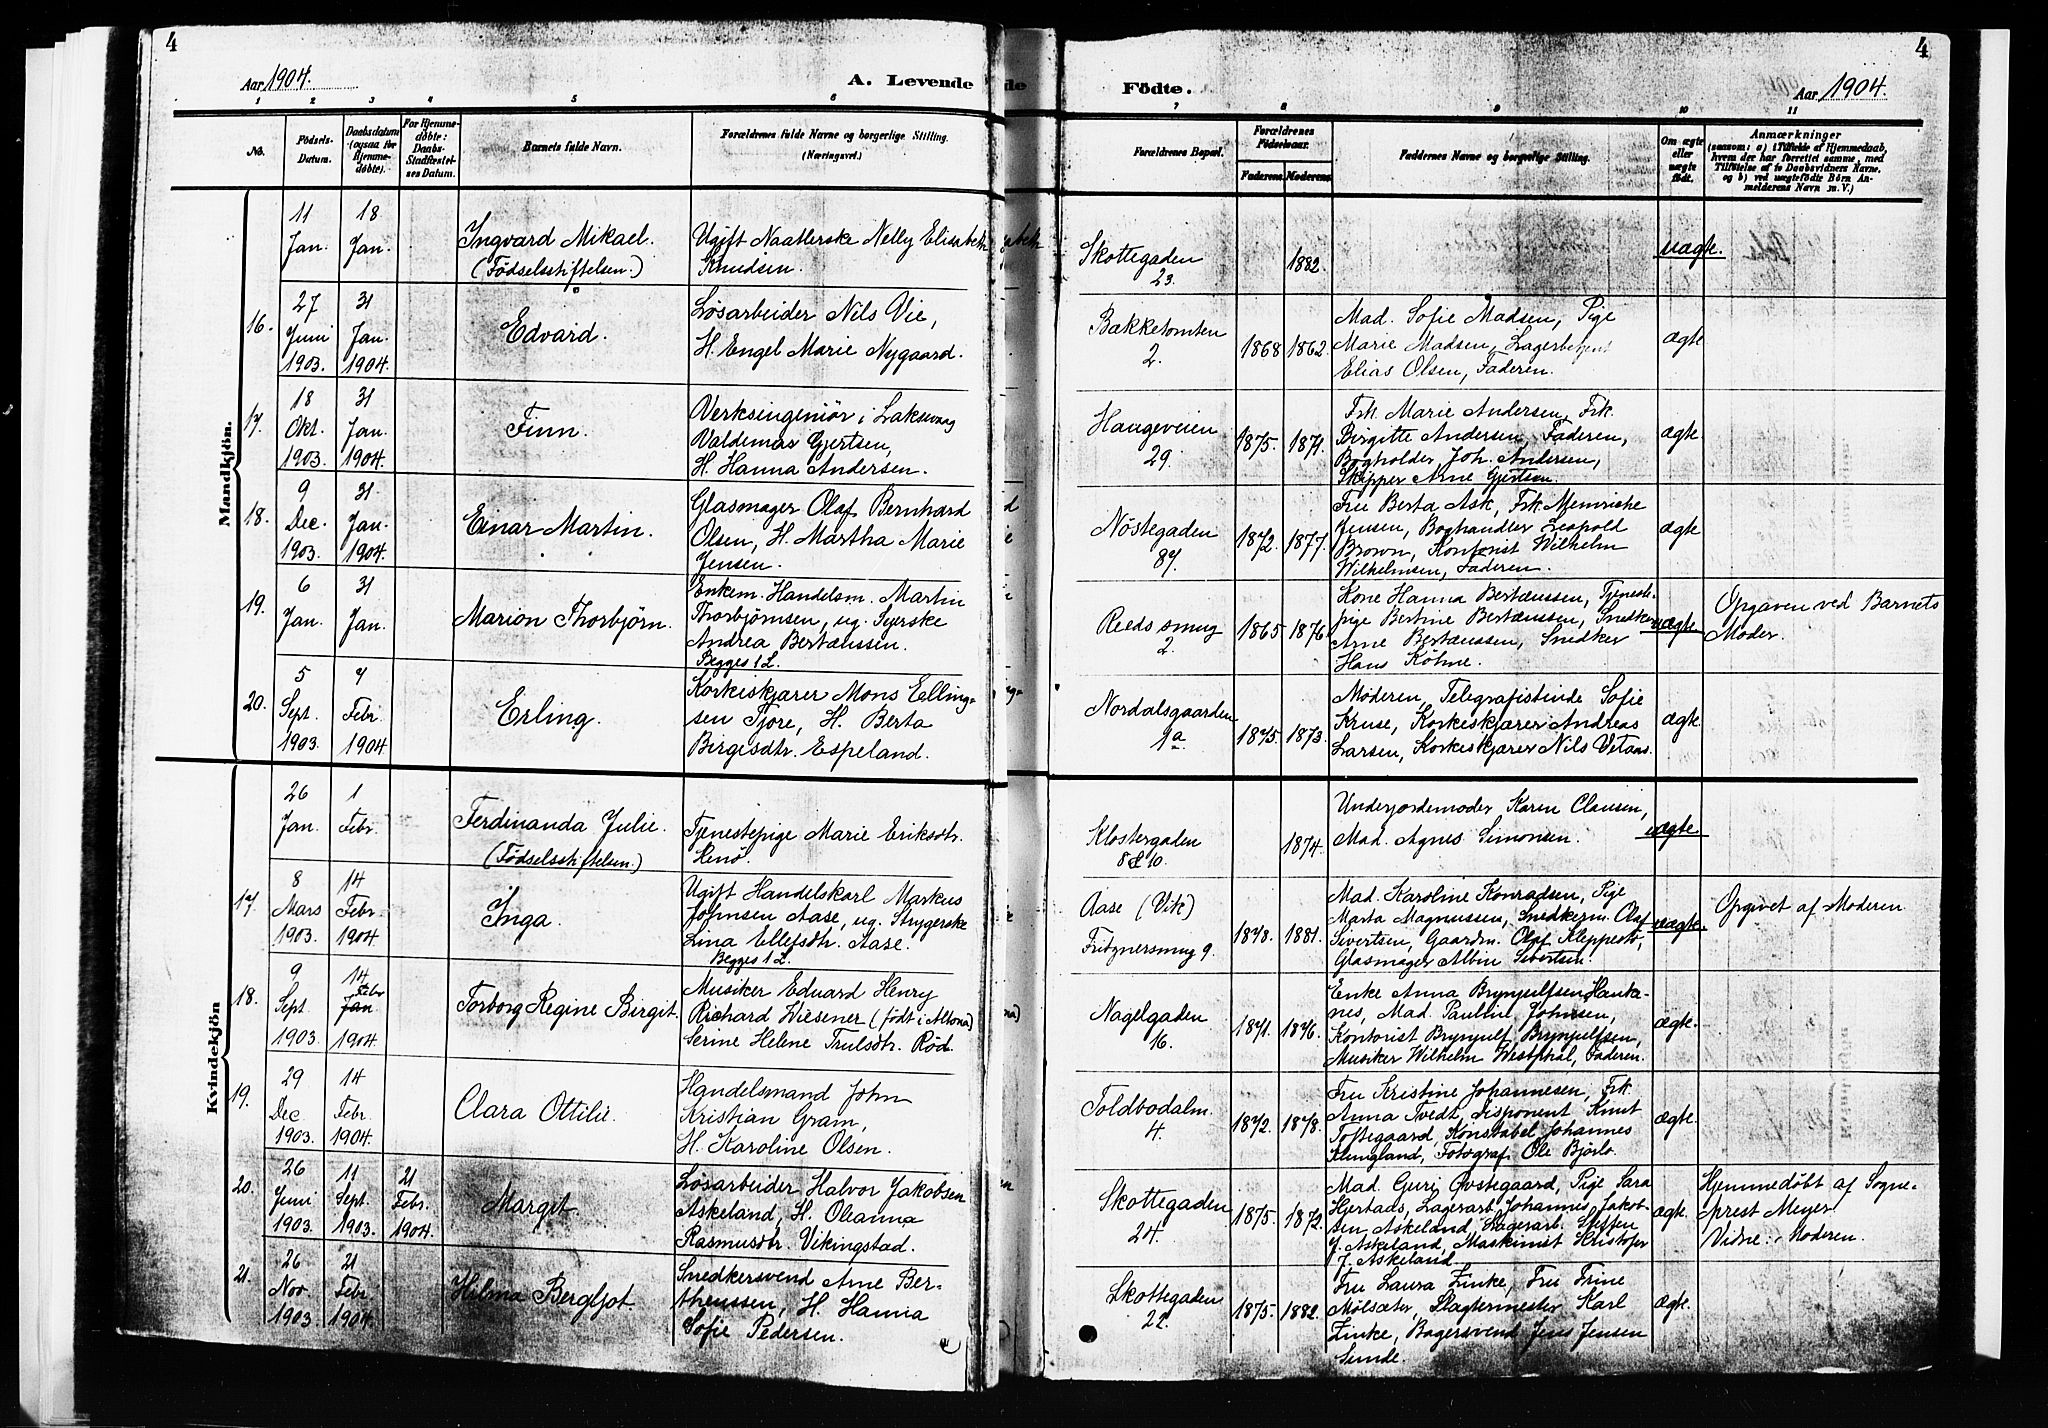 4
4
Aar 1904.
A. Levende
de
Födte.
Aar 1904.
1 2 3 4 5 6
7 8 9 10 11
No.
Födsels-
Datum.
Daabsdatum
(ogsaa for
Hjemme-
døbte).
For Hjemme-
døbte:
Daabs-
Stadfæstel-
ses Datum.
Barnets fulde Navn.
Forældrenes fulde Navne og borgerlige Stilling.
(Næringsvei.)
Forældrenes Bopæl.
Forældrenes
Födselsaar.
Faderens. Moderens.
Faddernes Navne og borgerlige Stilling.
Om ægte
eller
uægte
födt.
Anmærkninger
(saasom: a) i Tilfælde af Hjemmedaab,
hvem der har forrettet samme, med
Tilföielse af to Daabsvidners Navne,
og b) ved uægtefödte Börn An-
melderens Navn m. V.)
Mandkjön.
11
Jan.
18
Jan.
Ingvard Mikael.
(Fødselsstiftelsen.)
Ugift Naatlerske Nelly Elisabeth
Knudsen.
Skottegaden
23.
1882.
uægte.
16.
27
Juni
1903.
31
Jan.
1904.
Edvard.
Løsarbeider Nils Vie,
H. Engel Marie Nygaard.
Bakketomten
2.
1868
1862.
Mad. Sofie Madsen, Pige
Marie Madsen, Lagerbetjent
Elias Olsen, Faderen.
ægte
17.
18
Okt.
1903.
31
Jan.
1904.
Finn.
Verksingeniør i Laksevaag
Valdemar Gjertsen,
H. Hanna Andersen.
Haugeveien
29.
1875.
1871.
Frk. Marie Andersen, Frk.
Birgitte Andersen, Faderen,
Bogholder Joh. Andersen,
Skipper Arne Gjertsen.
ægte
18.
9
Dec.
1903.
31
Jan.
1904.
Einar Martin.
Glasmager Olaf Bernhard
Olsen, H. Martha Marie
Jensen.
Nøstegaden
87.
1872.
1877.
Fru Berta Ask, Frk. Henriche
Jensen, Boghandler Leopold
Brown, Kontorist Wilhelm
Wilhelmsen, Faderen.
ægte
19.
6
Jan.
31
Jan.
Marion Thorbjørn.
Enkem. Handelsm. Martin
Thorbjørnsen, ug. Syerske
Andrea Bertænssen.
Begges 1 L.
Reeds smug
2.
1865
1876.
Kone Hanna Bertænssen, Tjeneste-
pige Bertine Bertænssen, Snedker
Arne Bertænssen, Snedker
Hans Köhne.
uægte
Opgaven ved Barnets
Moder.
20.
5
Sept.
1903.
7
Febr.
1904
Erling.
Korkeskjærer Mons Elling-
sen Fjore, H. Berta
Birgesdtr. Espeland.
Nordalsgaarden
1a.
1875.
1873.
Moderen, Telegrafistinde Sofie
Kruse, Korkeskjærer Andreas
Larsen, Korkeskjærer Nils Vetaas.
ægte.
Kvindekjön
26
Jan.
1
Febr.
Ferdinanda Julie.
(Fødselsstiftelsen.)
Tjenestepige Marie Eriksdtr.
Renø.
Klostergaden
8 & 10.
1874.
Underjordemoder Karen Clausen,
Mad. Agnes Simonsen.
uægte
17.
8
Mars
1903.
14
Febr.
1904
Inga.
Ugift Handelskarl Markus
Johnsen Aase, ug. Strygerske
Lina Ellefsdtr. Aase.
Begges 1 L.
Aase (Vik)
Fritznersmug 9.
1878.
1881.
Mad. Karoline Konradsen, Pige
Marta Magnussen, Snedkerm. Olaf
Sivertsen, Gaardm. Olaf Kleppestø,
Glasmager Albin Sivertsen.
uægte.
Opgivet af Moderen
18.
9
Sept.
1903.
14
Febr
Jan
1904.
Torborg Regine Birgit.
Musiker Eduard Henry
Richard Wiesener (født i Altona)
Serine Helene Trulsdtr. Rød.
Nagelgaden
16.
1871.
1876.
Enke Anna Brynjulfsen Hauka-
nes, Mad. Pauline Johnsen,
Kontorist Brynjulf Brynjulfsen,
Musiker Wilhelm Westphal, Faderen.
ægte.
19.
29
Dec
1903.
14
Febr.
1904.
Clara Ottilie.
Handelsmand John
Kristian Gram,
H. Karoline Olsen.
Toldbodalm.
4.
1872.
1878.
Fru Kristine Johannesen, Frk.
Anna Tvedt, Disponent Knut
Toftegaard, Konstabel Johannes
Klingland, Fotograf Ole Bjørlo.
ægte.
20.
26
Juni
1903.
11
Sept.
1903.
21
Febr.
1904.
Margit.
Løsarbeider Halvor Jakobsen
Askeland, H. Oleanna
Rasmusdtr. Vikingstad.
Skottegaden
24.
1875.
1872.
Mad. Guri Øvstegaard, Pige Sara
Hjertaas, Lagerarb. Johannes Jakob-
sen Askeland, Lagerarb. Steffen
J. Askeland, Maskinist Kristofer
J. Askeland.
ægte.
Hjemmedøbt af Sogne-
prest Meyer
Vidne: Moderen.
21.
26
Nov.
1903.
21
Febr.
1904.
Hilma Bergljot.
Snedkersvend Arne Ber-
theussen, H. Hanna
Sofie Pedersen.
Skottegaden
22.
1875.
1882.
Fru Laura Finke, Fru Trine
Mølsæter, Slagtermester Karl
Finke, Bagersvend Jens Jensen
Sunde.
ægte.